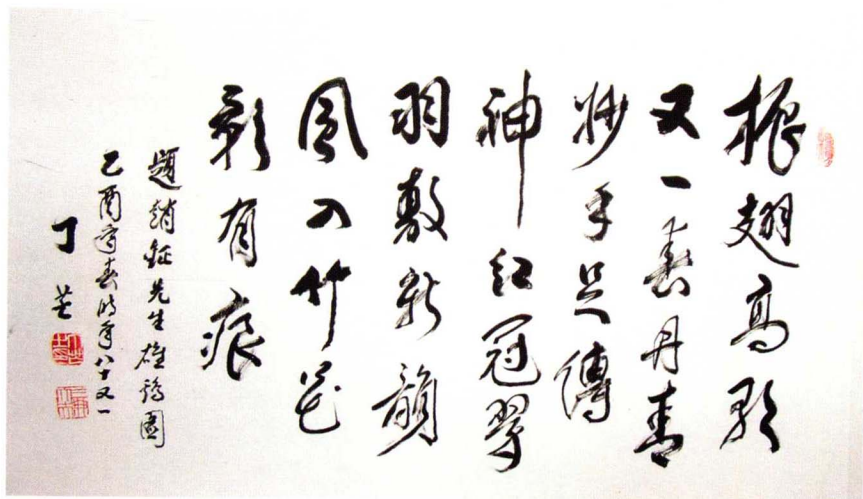 振翅高歌
又一春丹青
妙手足傳
神紅冠翠
羽敷新韻
風入竹花
影有痕
題趙鉦先生雄鷄圖
乙酉年春時年八十又一
丁芒